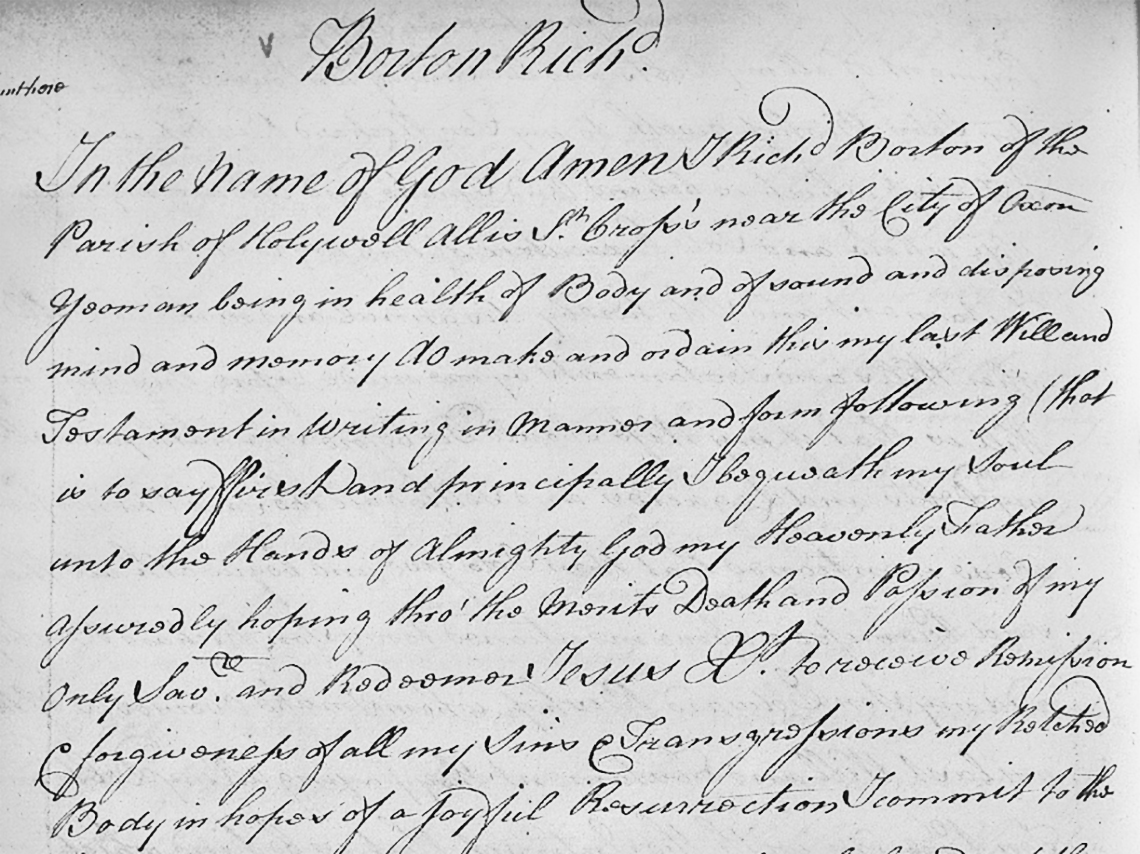 Borton Richd.
In the Name of God Amen I Richd Borton of the
Parish of Holywell Allis St. Cross's near the City of Oxon
Yeoman being in health of Body and of sound and disposing
mind and memory do make and ordain this my last Will and
Testament in writing in Manner and form following (that
is to say ffirst and principally I bequeath my Soul
unto the Hands of Almighty God my Heavenly Father
Assuredly hoping thro' the Merits Death and Passion of my
Only Savr. and Redeemer Jesus Xt. to receive Remission
& forgiveness of all my Sins & Transgressions my Retched
Body in hopes of a Joyful Resurrection I commit to the